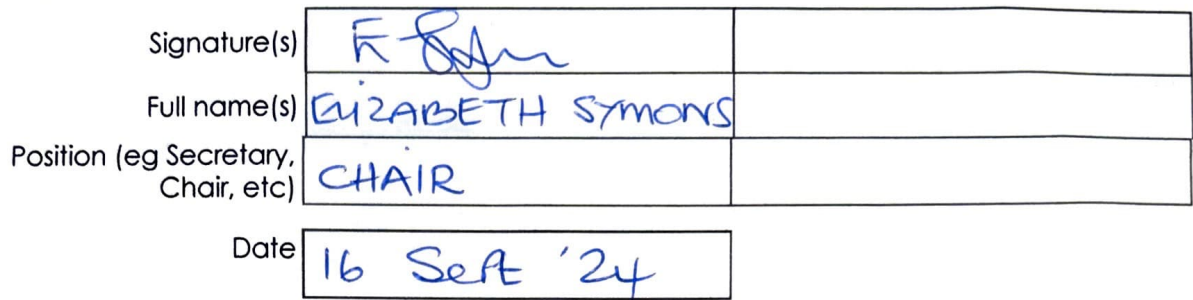 Signature(s)
Full name(s) ELIZABETH SYMONS
Position (eg Secretary,
Chair, etc) CHAIR
Date 16 Sept '24